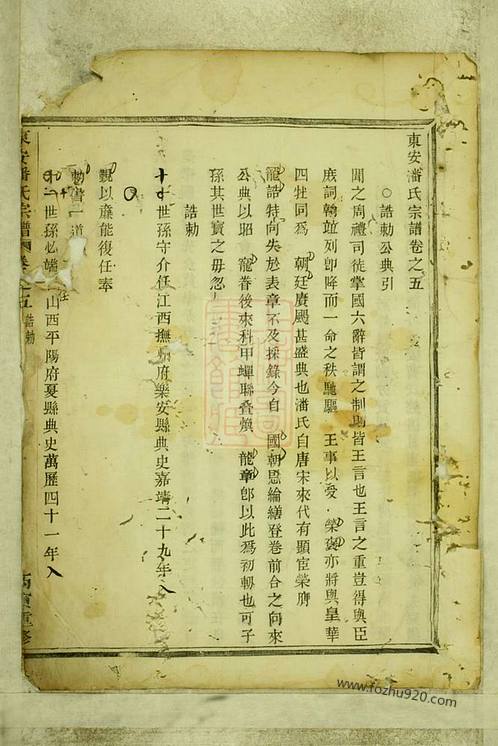 東安潘氏宗譜卷之五
○誥勅公典引
聞之周禮司徒掌國六辭皆謂之制則皆王言也王言之重豈得與臣
庶詞翰竝列即降而一命之秩馳驅 王事以受 榮褒亦將與皇華
四牡同爲 朝廷賡颺甚盛典也潘氏自唐宋來代有顯宦榮膺
龍誥特向失於表章不及採錄今自 國朝恩綸繕登卷前合之向來
公典以昭 寵眷後來科甲蟬聯疊煥 龍章卽以此爲初軔也可子
孫其世寳之毋忽
誥勅
十 世孫守介任江西撫 府樂安縣典史嘉靖二十九年入
覲以廉能復任奉
勅書一道
世孫 山西平陽府夏縣典史萬歷四十一年入
東安潘氏宗譜 五 誥勅
重修
www.fozhu920.com